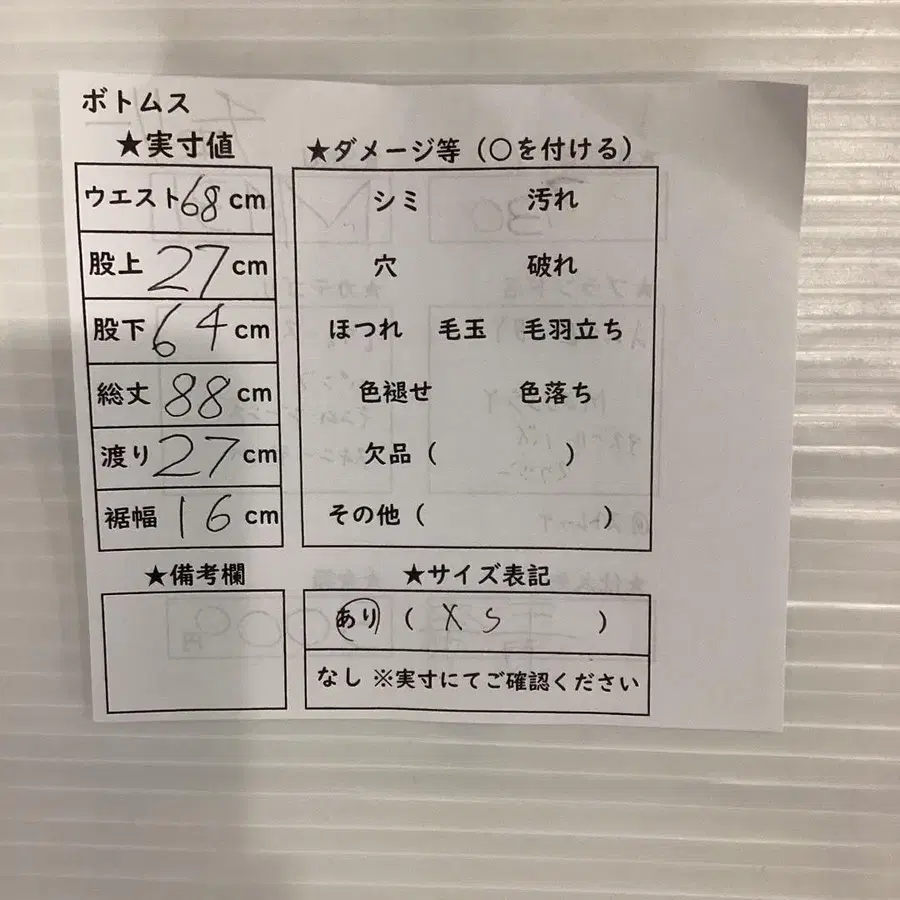 ボトムス
★実寸値
ウエスト68cm
股上27cm
股下64cm
総丈88cm
渡り27cm
裾幅16cm
★備考欄
★ダメージ等（○を付ける）
シミ 汚れ
穴 破れ
ほつれ 毛玉 毛羽立ち
色褪せ 色落ち
欠品（ ）
その他（ ）
★サイズ表記
あり（ XS ）
なし ※実寸にてご確認ください